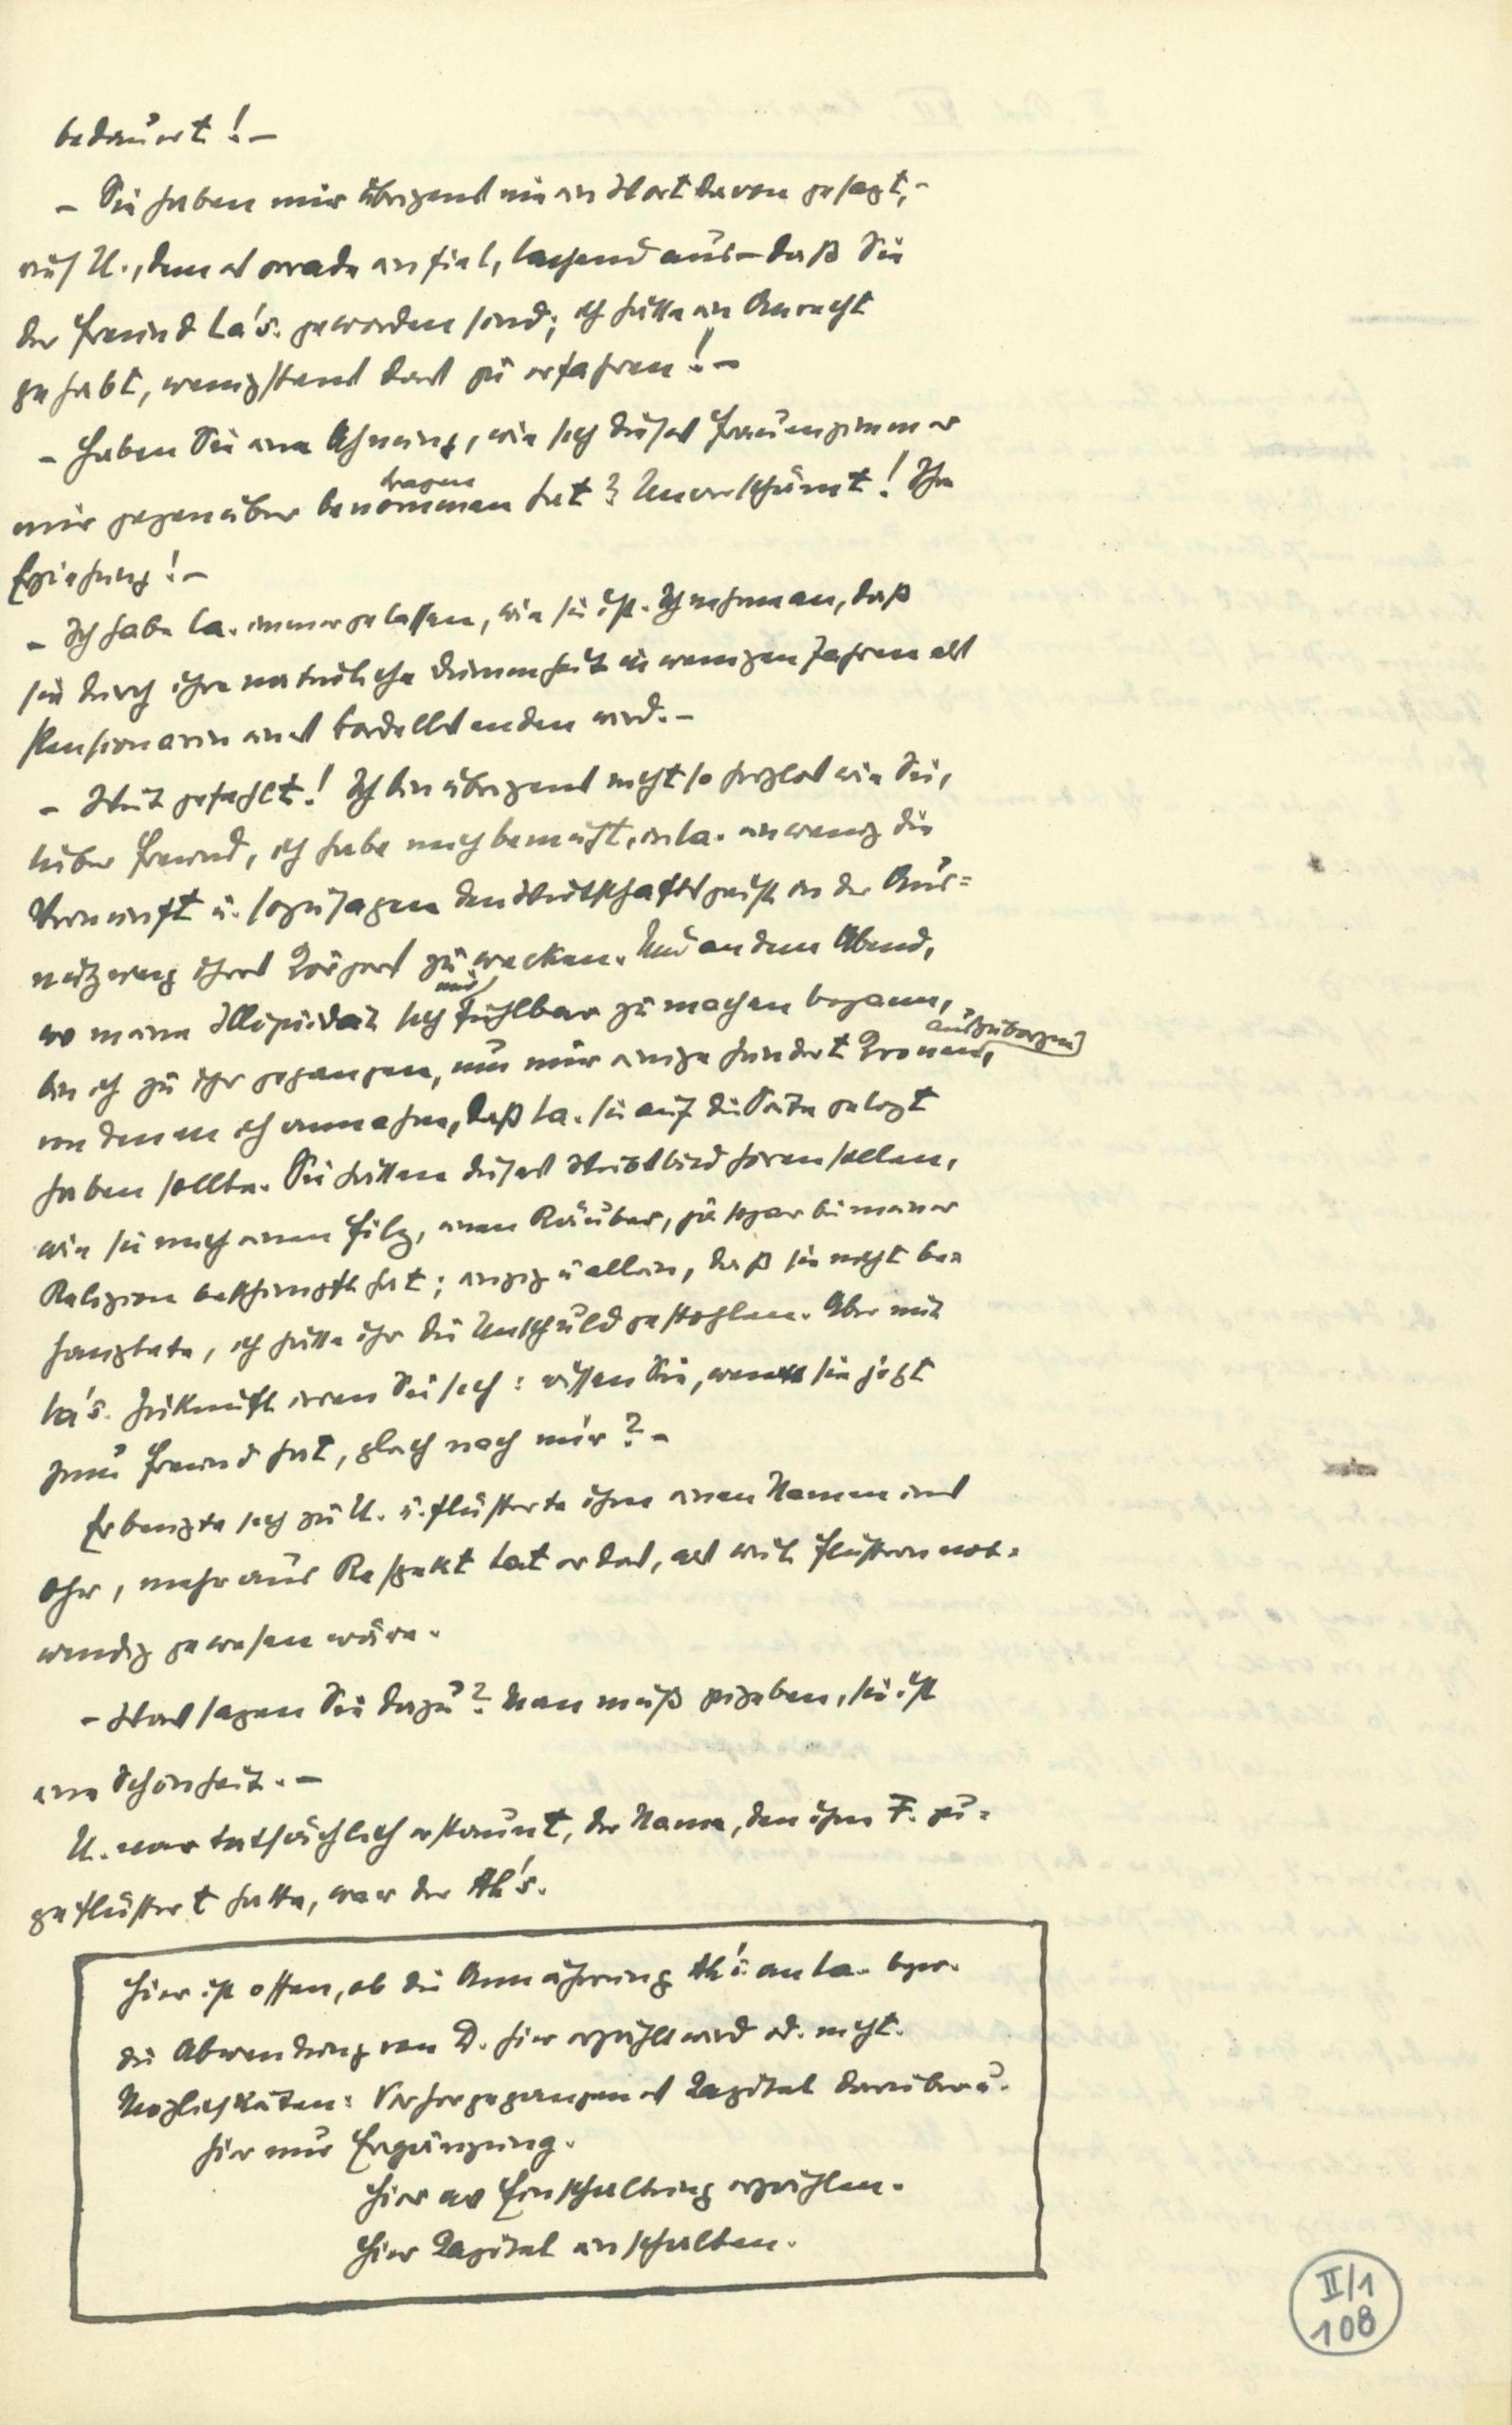 bedauert! –
– Sie haben mir übrigens nie ein Wort davon gesagt, –
rief U., dem es gerade einfiel, lachend aus – daß Sie
der Freund La's. geworden sind; ich hätte ein Anrecht
gehabt, wenigstens das zu erfahren! –
– Haben Sie eine Ahnung, wie sich dieses Frauenzimmer
mir gegenüber benommen hat? Unverschämt! Ihre
betragen
Erziehung! –
– Ich habe La. immer gelassen, wie sie ist. Ich nehme an, daß
sie durch ihre natürliche Dummheit in wenigen Jahren als
Pensionärin eines Bordells enden wird. –
– Weit gefehlt! Ich bin übrigens nicht so herzlos wie Sie,
lieber Freund, ich habe mich bemüht, in La. ein wenig die
Vernunft u. sozusagen den Wirtschaftsgeist in der Aus=
nutzung ihres Körpers zu wecken. Und an dem Abend,
wo meine Illiquidät sich fühlbar zu machen begann,
mir
bin ich zu ihr gegangen, um mir einige hundert Kronen,
auszuborgen
von denen ich annahm, daß La. sie auf die Seite gelegt
haben sollte. Sie hätten dieses Weibsbild hören sollen,
wie sie mich einen Filz, einen Räuber, ja sogar bei meiner
Religion beschimpft hat; einzig u allein, daß sie nicht be=
hauptete, ich hätte ihr die Unschuld gestohlen. Aber mit
La's. Zukunft irren Sie sich: wissen Sie, wen sie jetzt
zum Freund hat, gleich nach mir? –
Er beugte sich zu U. u. flüsterte ihm einen Namen ins
Ohr, mehr aus Respekt tat er das, als weil Flüstern not=
wendig gewesen wäre.
– Was sagen Sie dazu? Man muß zugeben, sie ist
eine Schönheit. –
U. war tatsächlich erstaunt, der Name, den ihm F. zu=
geflüstert hatte, war der Ah's.
Hier ist offen, ob die Annäherung Ah's. an La. bzw.
die Abwendung von D. hier erzählt wird od. nicht.
Möglichkeiten: Vorhergegangenes Kapitel darüber u.
hier nur Ergänzung.
Hier als Einschaltung erzählen.
Hier Kapitel einschalten.
II/1
108